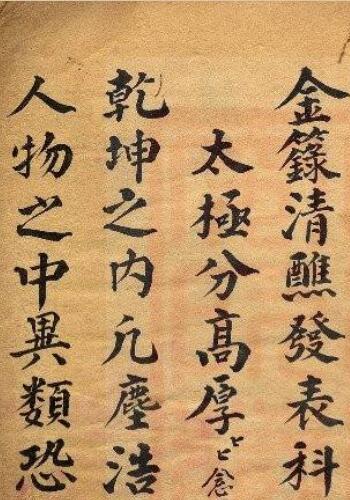 金籙清醮發表科
太極分高厚ヒヒ念
乾坤之内凡塵浩
人物之中異類恐